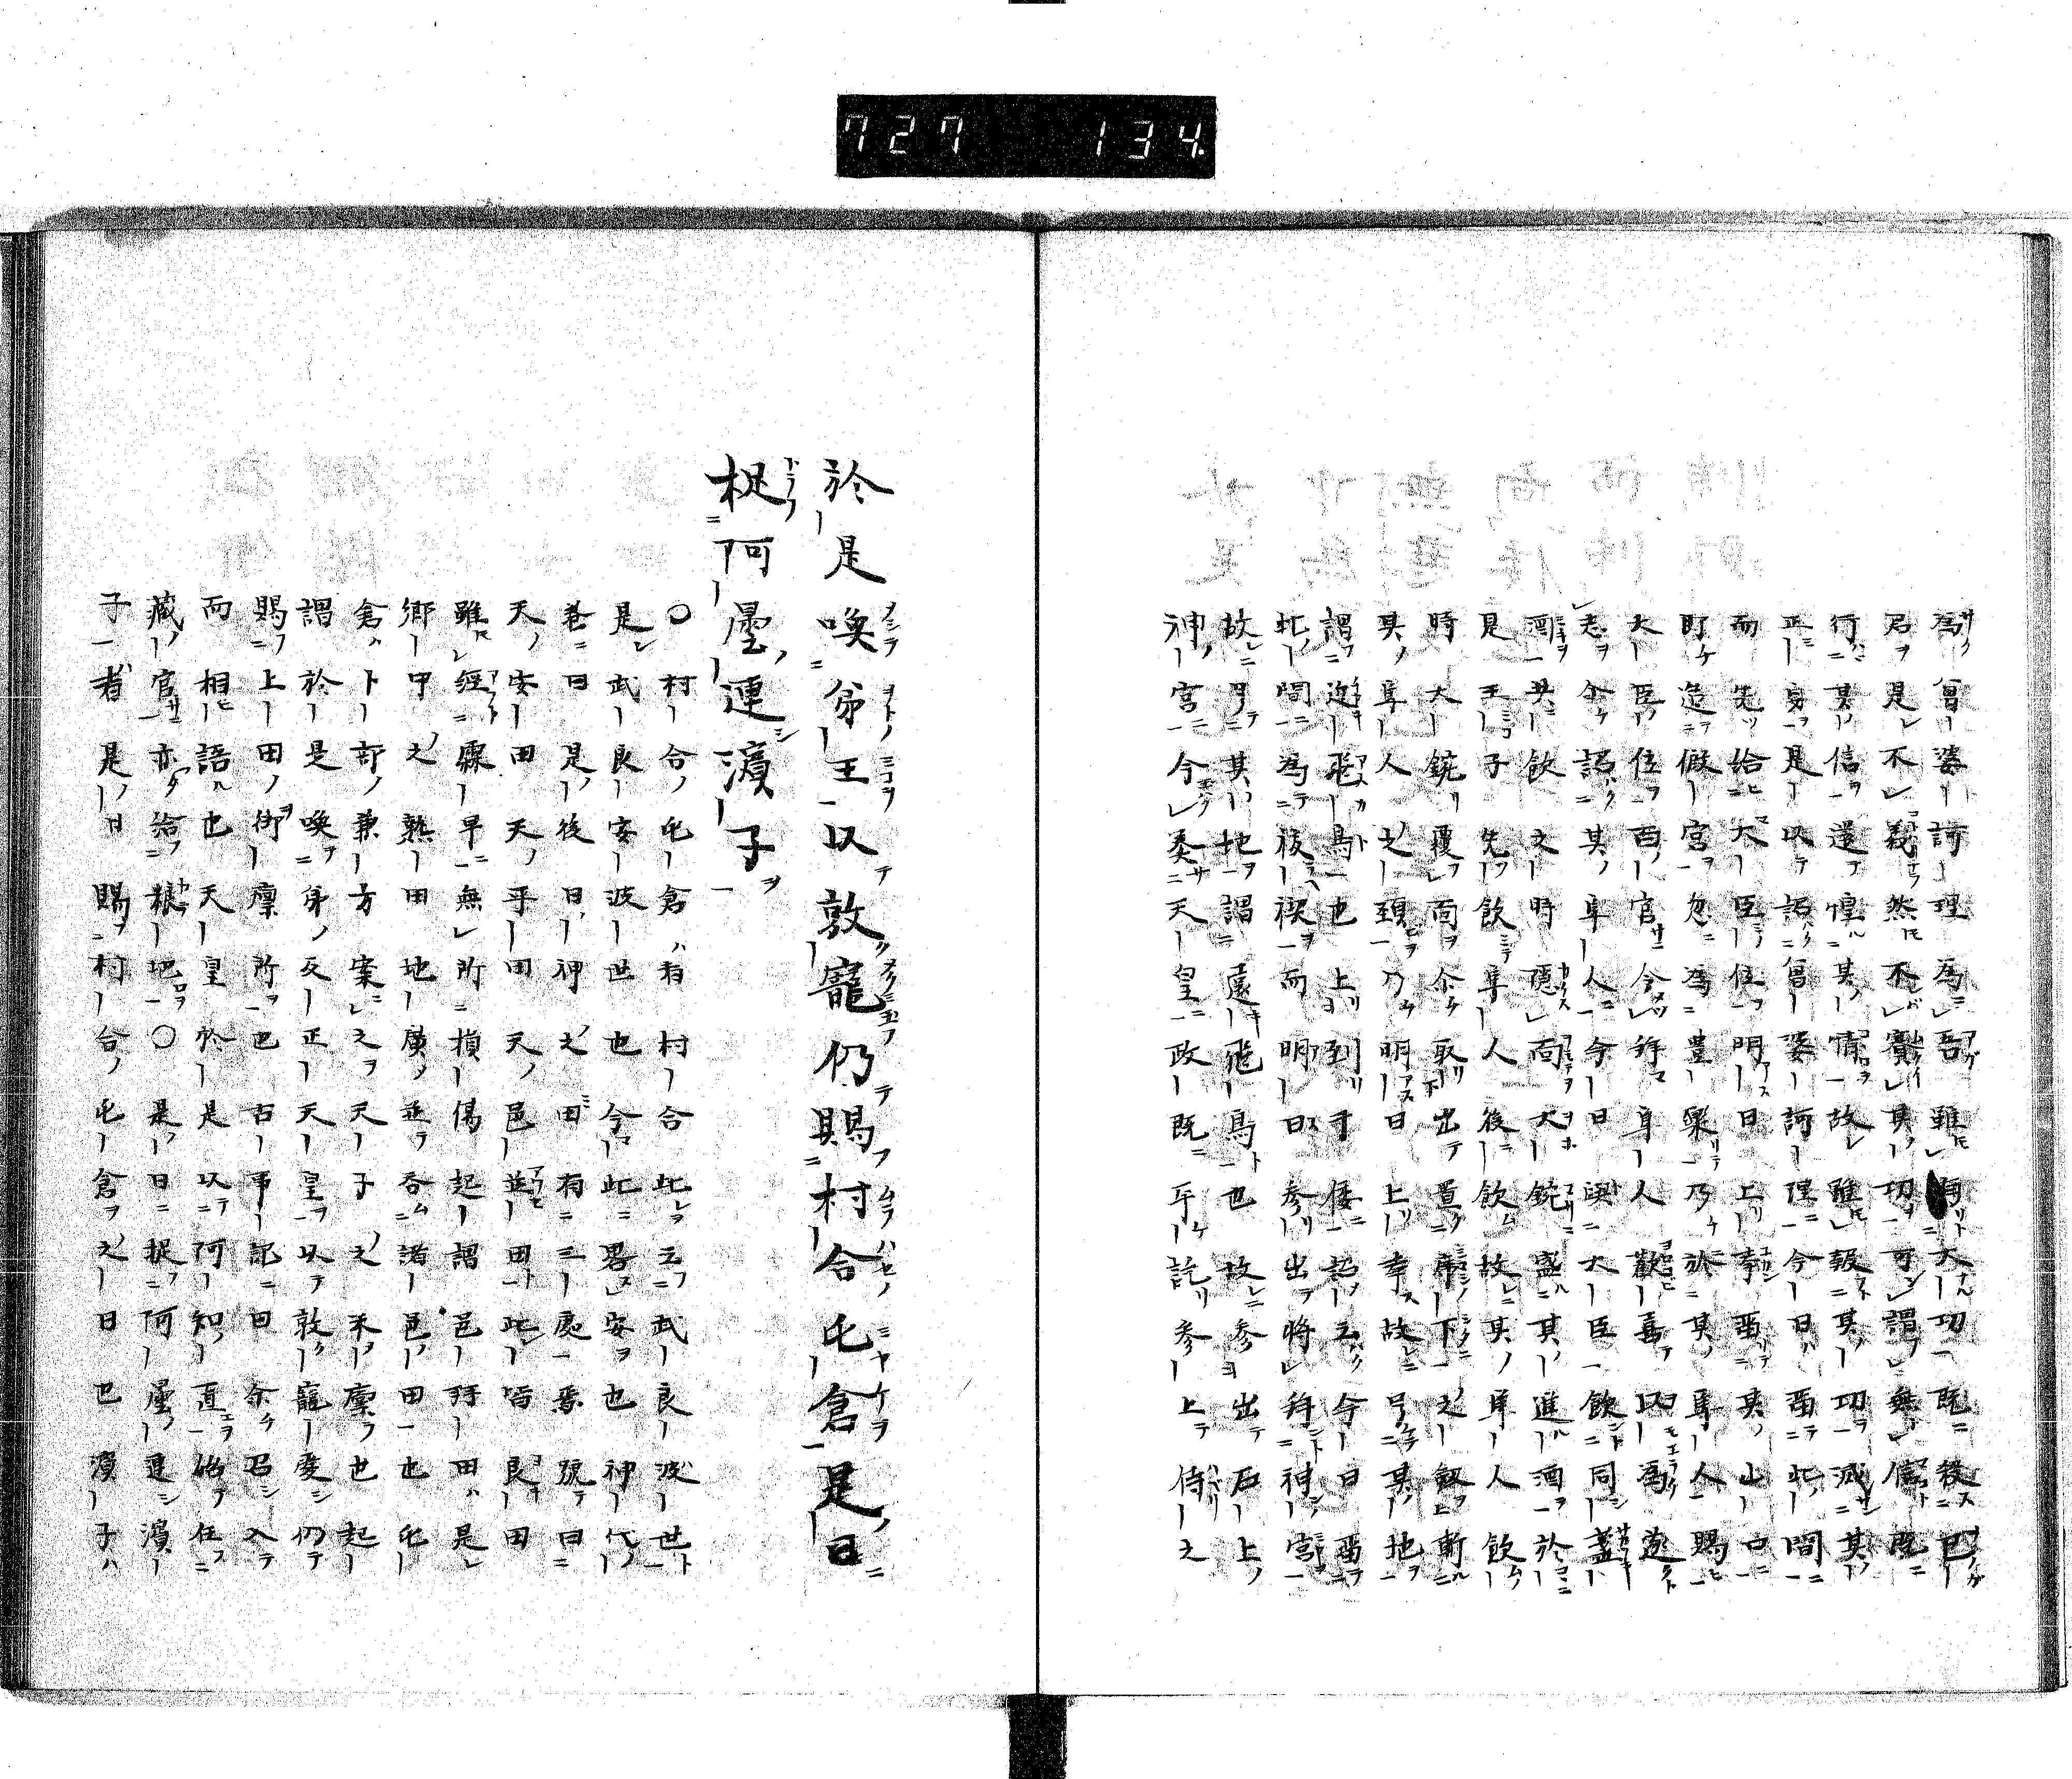 為曾婆訶理為吾雖有大功既殺己
君是不義然不賽其功可謂無信既
行其信還惶其情故雖報其功滅其
正身是以詔曾婆訶理今日留此間
而先給大臣位明日上幸留其山口
即造假宮忽為豊樂乃於其隼人賜
大臣位百官令拜隼人歡喜以為遂
志尒詔其隼人今日與大臣飲同盞
酒共飲之時隱面大鋺盛其進酒於
是王子先飲隼人後飲故其隼人飲
時大鋺覆面尒取出置席下之釼斬
其隼人之頚乃明日上幸故号其地
謂近飛鳥也上到于倭詔之今日留
此間為祓禊而明日參出將拜神宮
故号其地謂遠飛鳥也故參出石上
神宮令奏天皇政既平訖參上侍之
於是喚弟王以敦寵仍賜村合屯倉是日
捉阿曇連濱子
○村合屯倉有村合此云武良波世
是武良安波世也今此畧安也神代
巻曰是後日神之田有三處焉號曰
天安田天平田天邑並田此皆良田
雖經霖旱無所損傷起謂邑拜田是
郷中之熟田地廣並吞諸邑田也屯
倉卜部兼方案之天子之米廩也起
謂於是喚弟反正天皇以敦寵愛仍
賜上田御廩所也古事記曰尒召入
而相語也天皇於是以阿知直始任
藏官亦給粮地○是日捉阿曇連濱
子者是日賜村合屯倉之日也濱子
727 134